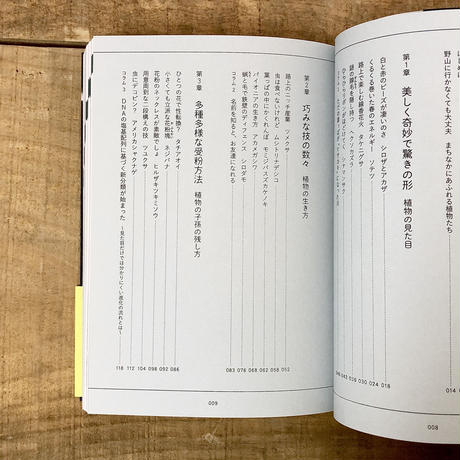 野山に行かなくても大丈夫　まちなかにあふれる植物たち
第1章　美しく奇妙で驚きの形　植物の見た目
白と赤のビーズが凄いのさ　シロザとアカザ
くるくる巻いた春のエネルギー　ソテツ
路上で楽しむ線香花火　タケニグサ
謎の臍を探せ　ヘクソカズラ
018
024
030
第2章　巧みな技の数々　植物の生き方
路上のニッチ産業　ツメクサ
虫は食べないけれど　ムシトリナデシコ
葉っぱの中にかくれんぼ　モミジバスズカケノキ
パイオニアの生き方　アカメガシワ
蝋と毛で鉄壁のディフェンス　シロダモ
コラム2　名前を知ると、お友達になれる
052
058
062
068
076
083
第3章　多種多様な受粉方法　植物の子孫の残し方
ひとつの花で性転換　タチアオイ
小さくても立派な花粉塊　ネジバナ
花粉のネックレスが素敵でしょ　ヒルザキツキミソウ
用意周到な二段構えの技　ツユクサ
虫にデコピン？　アメリカシャクナゲ
コラム3　DNAの塩基配列に基づく新分類が始まった　〜見た目だけでは分かりにくい進化の流れとは〜
086
092
098
104
112
118
009
008